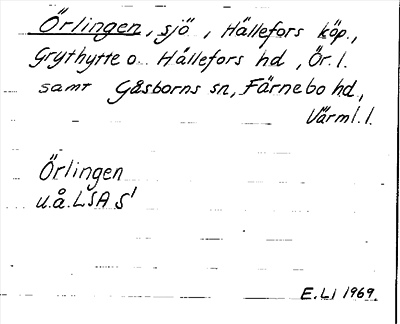 Örlingen, sjö, Hällefors köp.,
Grythytte o. Hällefors hd, Ör. l.
samt Gåsborns sn, Färnebo hd,
Värml. l.
Örlingen
u.å. LSA S1
E. Li 1969.